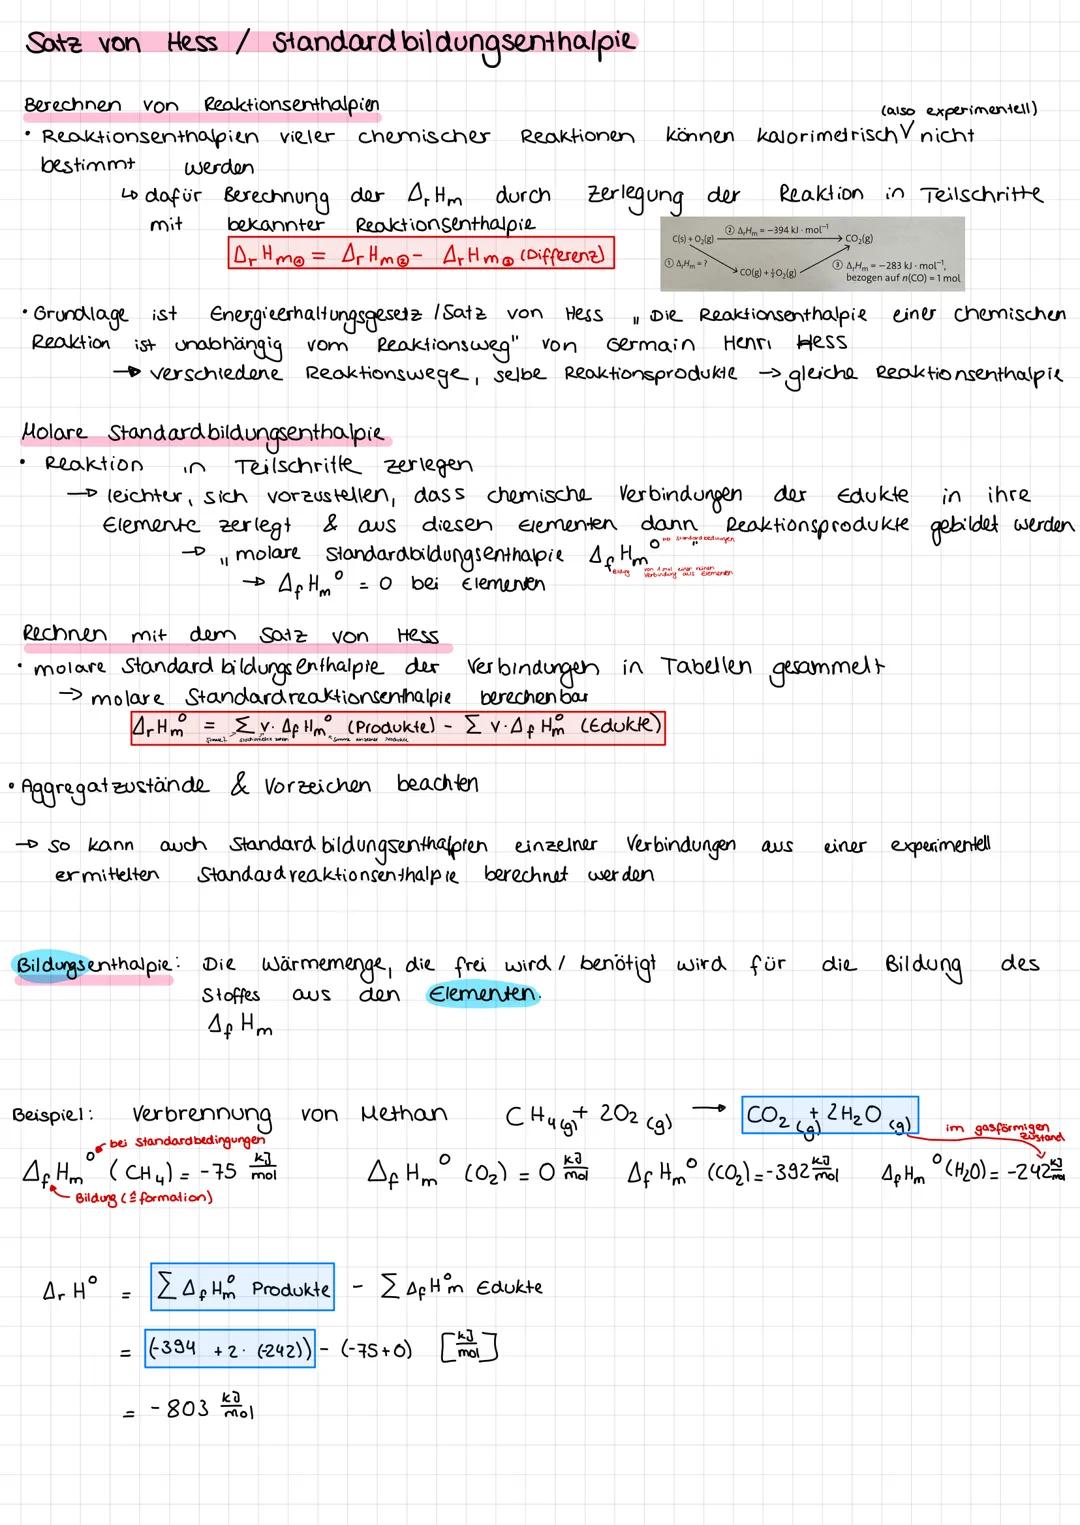 Satz von Hess / Standardbildungsenthalpie
Berechnen von Reaktionsenthalpien
(also experimentell)
• Reaktionsenthalpien vieler chemischer Reaktionen können kalorimetrisch V nicht
bestimmt werden
↳ dafür Berechnung der ΔrHm durch Zerlegung der Reaktion in Teilschritte
mit bekannter Reaktionsenthalpie
ΔrHm① = ΔrHm② - ΔrHm③ (Differenz)
② ΔrHm = −394 kJ · mol⁻¹
C(s) + O₂(g) → CO₂(g)
① ΔrHm = ?
CO(g) + ½O₂(g)
③ ΔrHm = −283 kJ · mol⁻¹,
bezogen auf n(CO) = 1 mol
• Grundlage ist Energieerhaltungsgesetz / Satz von Hess „Die Reaktionsenthalpie einer chemischen
Reaktion ist unabhängig vom Reaktionsweg" von Germain Henri Hess
→ verschiedene Reaktionswege, selbe Reaktionsprodukte → gleiche Reaktionsenthalpie
Molare Standardbildungsenthalpie
• Reaktion in Teilschritte zerlegen
→ leichter, sich vorzustellen, dass chemische Verbindungen der Edukte in ihre
Elemente zerlegt & aus diesen Elementen dann Reaktionsprodukte gebildet werden
→ „molare Standardbildungsenthalpie ΔfHm⁰"
Standardbedingungen
Bildung
von 1 mol einer reinen
Verbindung aus Elementen
→ ΔfHm⁰ = 0 bei Elementen
Rechnen mit dem Satz von Hess
• molare Standardbildungsenthalpie der Verbindungen in Tabellen gesammelt
→ molare Standardreaktionsenthalpie berechenbar
ΔrHm⁰ = Σ ν · ΔfHm⁰ (Produkte) - Σ ν · ΔfHm⁰ (Edukte)
• Aggregatzustände & Vorzeichen beachten
→ so kann auch Standardbildungsenthalpien einzelner Verbindungen aus einer experimentell
ermittelten Standardreaktionsenthalpie berechnet werden
Bildungsenthalpie: Die Wärmemenge, die frei wird / benötigt wird für die Bildung des
Stoffes aus den Elementen.
ΔfHm
Beispiel: Verbrennung von Methan CH₄(g) + 2O₂ (g) → CO₂ (g) + 2H₂O (g)
im gasförmigen
Zustand
bei Standardbedingungen
ΔfHm⁰ (CH₄) = -75 kJ/mol ΔfHm⁰ (O₂) = 0 kJ/mol ΔfHm⁰ (CO₂) = -392 kJ/mol ΔfHm⁰ (H₂O) = -242 kJ/mol
Bildung (≙ formation)
ΔrH⁰ = Σ ΔfHm⁰ Produkte - Σ ΔfHm⁰ Edukte
= (-394 + 2 · (-242)) - (-75+0) [kJ/mol]
= -803 kJ/mol